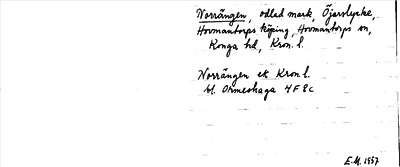 Norrängen, odlad mark, Öjarslycke,
Hovmantorps köping, Hovmantorps sn,
Konga hd, Kron. l.
Norrängen ek Kron l.
bl. Ormeshaga 4F 8c
E.M. 1957